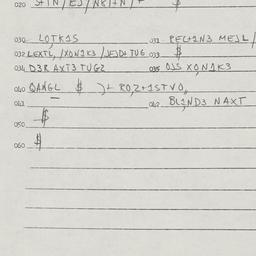 020 $
030 LOTK1S 031 PEL+1N3 MEJL/
032 LEXTL, /XON1K3 /JEJD+ TUG 033 $
034 D3R AXT3 TUG2 035 OJS XON1K3
040 OANGL $
041 042 BL1ND3 NAXT
050 $
060 $